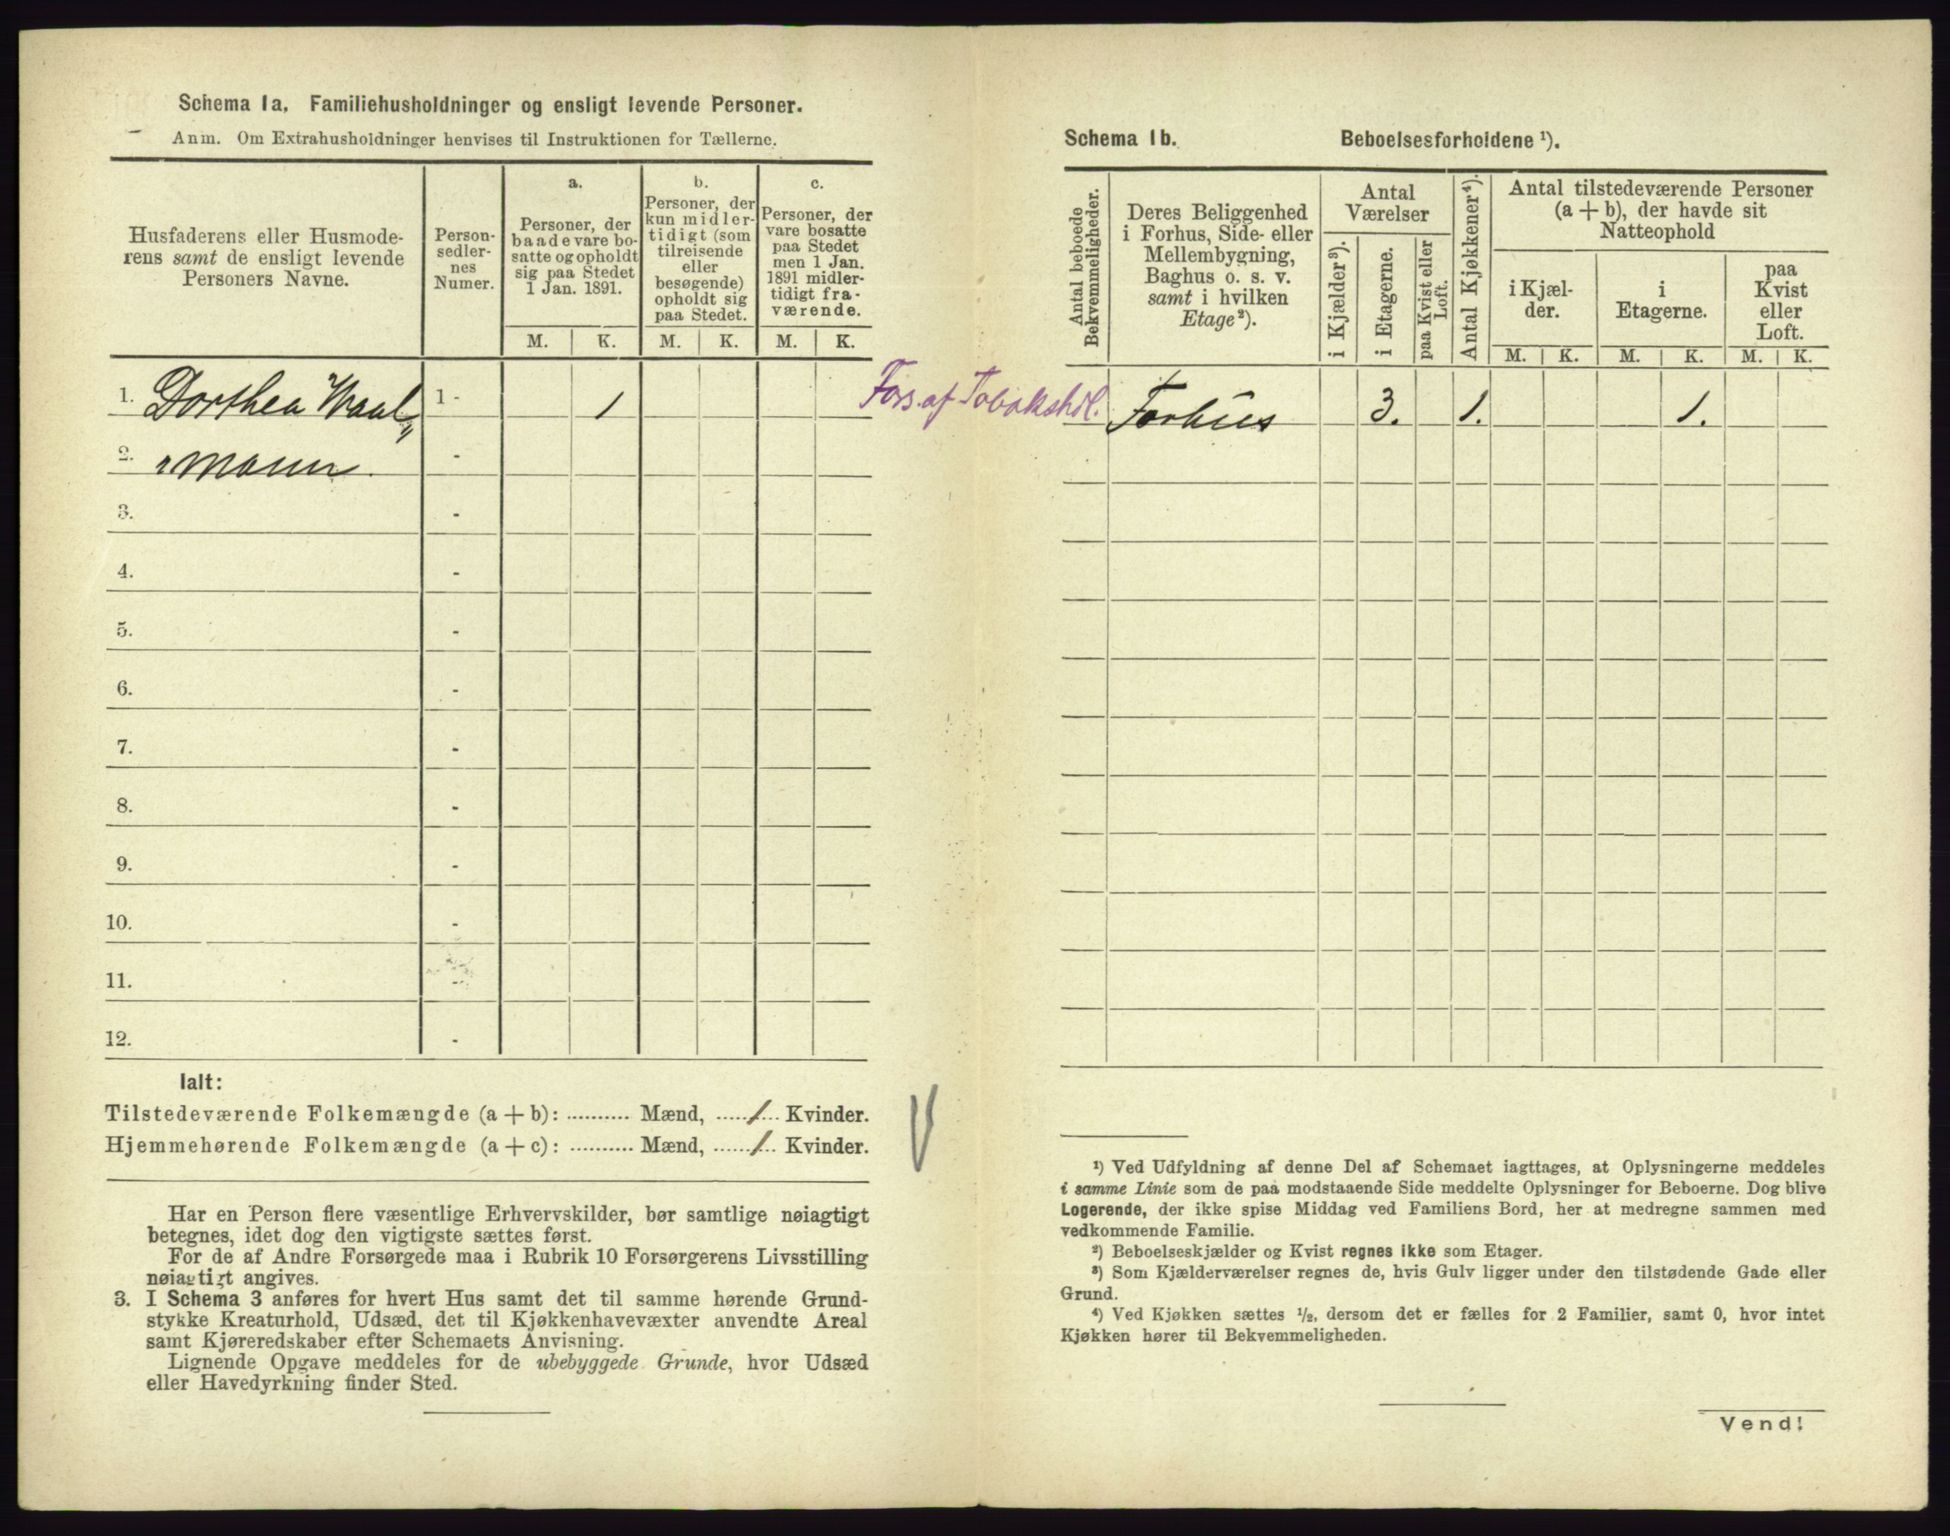 Schema 1a. Familiehusholdninger og ensligt levende Personer.
Anm. Om Extrahusholdninger henvises til Instruktionen for Tællerne.
Husfaderens eller Husmode-
rens samt de ensligt levende
Personers Navne.
Person-
sedler-
nes
Numer.
a.
Personer, der
baade vare bo-
satte og opholdt
sig paa Stedet
1 Jan. 1891.
b.
Personer, der
kun midler-
tidigt (som
tilreisende
eller
besøgende)
opholdt sig
paa Stedet.
c.
Personer, der
vare bosatte
paa Stedet
men 1 Jan.
1891 midler-
tidigt fra-
værende.
M. K. M. K. M. K.
1. Dorthea Waal„ 1 - 1
2. „mann. -
3. -
4. -
5. -
6. -
7. -
8. -
9. -
10. -
11. -
12. -
Ialt:
Tilstedeværende Folkemængde (a + b): .......... Mænd, ......1... Kvinder.
Hjemmehørende Folkemængde (a + c): .......... Mænd, ......1... Kvinder.
Har en Person flere væsentlige Erhvervskilder, bør samtlige nøiagtigt
betegnes, idet dog den vigtigste sættes først.
For de af Andre Forsørgede maa i Rubrik 10 Forsørgerens Livsstilling
nøiagtigt angives.
3. I Schema 3 anføres for hvert Hus samt det til samme hørende Grund-
stykke Kreaturhold, Udsæd, det til Kjøkkenhavevæxter anvendte Areal
samt Kjøreredskaber efter Schemaets Anvisning.
Lignende Opgave meddeles for de ubebyggede Grunde, hvor Udsæd
eller Havedyrkning finder Sted.
Schema 1b. Beboelsesforholdene ¹).
Antal beboede
Bekvemmeligheder.
Deres Beliggenhed
i Forhus, Side- eller
Mellembygning,
Baghus o. s. v.
samt i hvilken
Etage²).
Antal
Værelser
i Kjælder³).
i Etagerne.
paa Kvist eller
Loft.
Antal Kjøkkener⁴).
Antal tilstedeværende Personer
(a + b), der havde sit
Natteophold
i Kjæl-
der.
i
Etagerne.
paa
Kvist
eller
Loft.
M. K. M. K. M. K.
Fors. af Tobakshdl. Forhus 3. 1. 1.
¹) Ved Udfyldning af denne Del af Schemaet iagttages, at Oplysningerne meddeles
i samme Linie som de paa modstaaende Side meddelte Oplysninger for Beboerne. Dog blive
Logerende, der ikke spise Middag ved Familiens Bord, her at medregne sammen med
vedkommende Familie.
²) Beboelseskjælder og Kvist regnes ikke som Etager.
³) Som Kjælderværelser regnes de, hvis Gulv ligger under den tilstødende Gade eller
Grund.
⁴) Ved Kjøkken sættes ¹/₂, dersom det er fælles for 2 Familier, samt 0, hvor intet
Kjøkken hører til Bekvemmeligheden.
Vend!